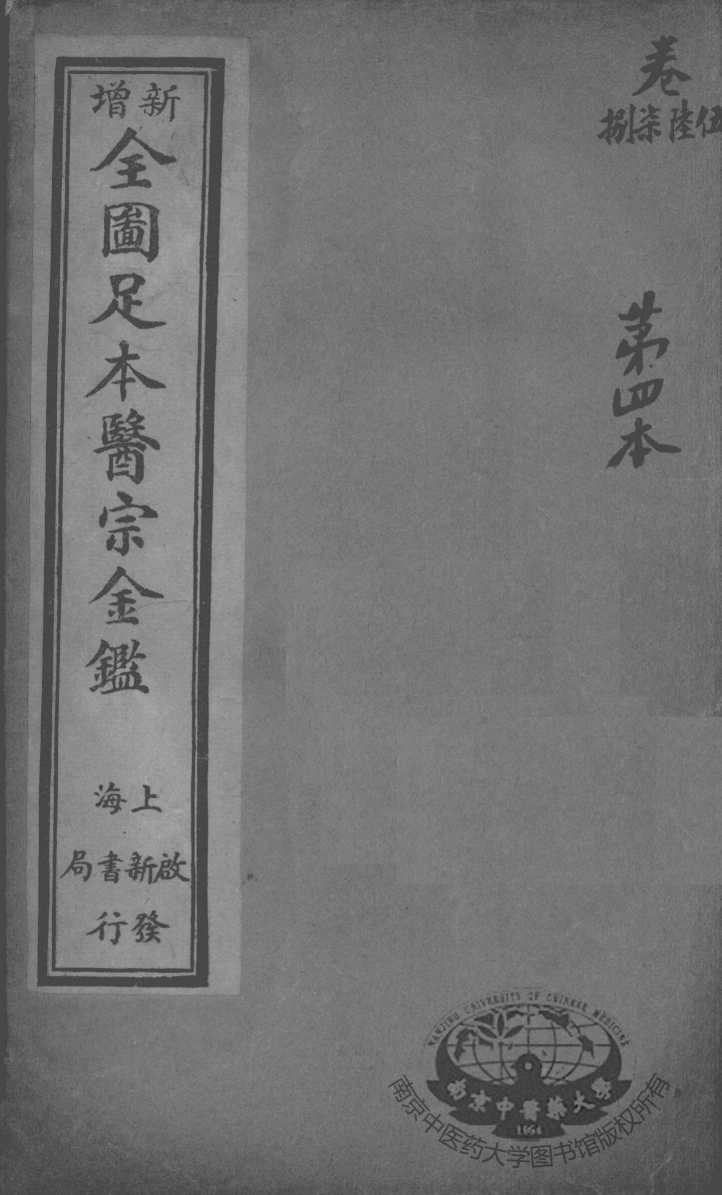 卷
伍陸柒捌
第四本
新增
全圖足本醫宗金鑑
上海
啟新書局
發行
NANJING UNIVERSITY OF CHINESE MEDICINE
南京中醫藥大學
1954
南京中医药大学图书馆版权所有